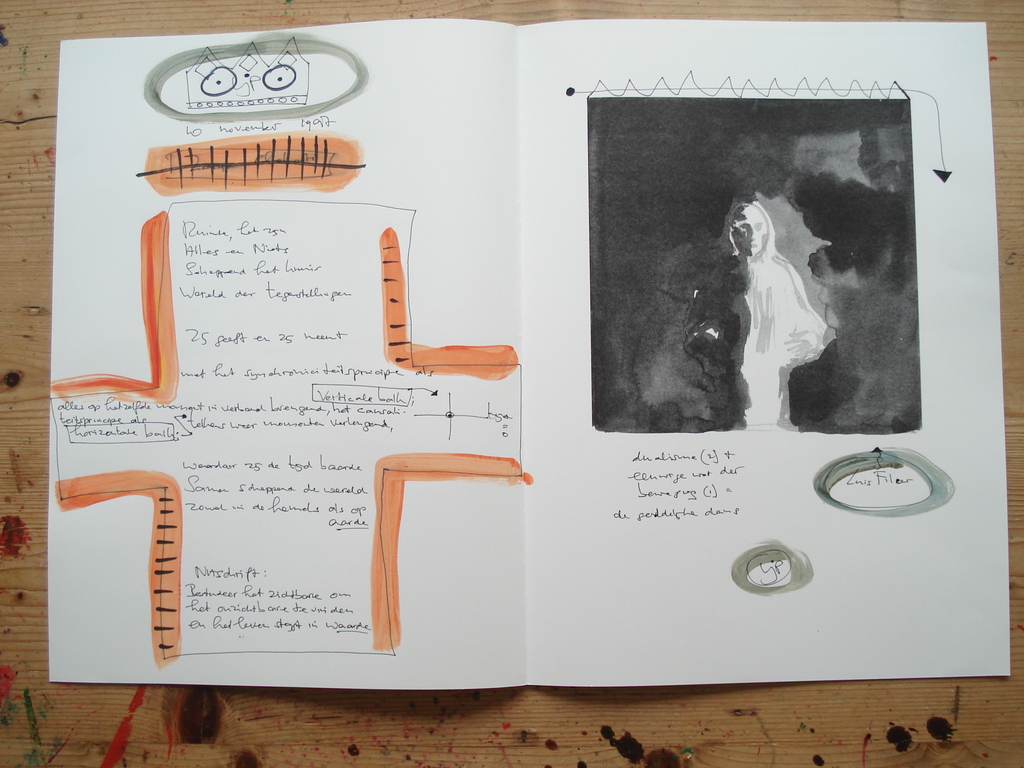 yp
10 november 1997
Ruimte, het zijn
Alles en Niets
Scheppend het hier
Wereld der tegenstellingen
Zij geeft en zij neemt
met het synchroniciteitsprincipe als
verticale balk;
alles op hetzelfde moment in verband brengend, het causali-
teitsprincipe als
horizontale balk;
telkens weer momenten verlengend,
waardoor zij de tijd baarde
Samen scheppend de wereld
zowel in de hemels als op
aarde
Naschrift:
Bestudeer het zichtbare om
het onzichtbare te vinden
en het leven stijgt in waarde
dualisme (2) +
eeuwige wet der
beweging (1) =
de goddelijke dans
Luis Filcer
yp